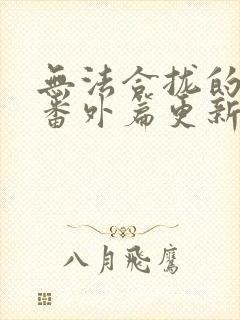 無法合拢的
番外篇更新
八月飛鷹